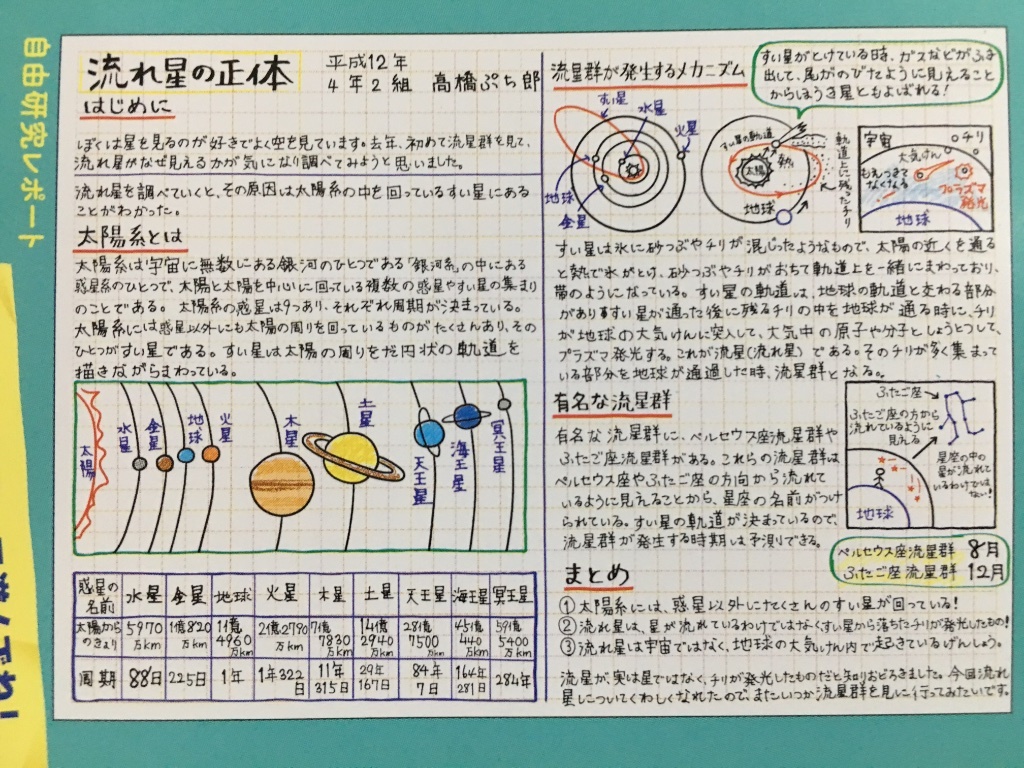 自由研究レポート
流れ星の正体
平成12年
4年2組 高橋ぷち郎
はじめに
ぼくは星を見るのが好きでよく空を見ています。去年、初めて流星群を見て、
流れ星がなぜ見えるかが気になり調べてみようと思いました。
流れ星を調べていくと、その原因は太陽系の中を回っているすい星にある
ことがわかった。
太陽系とは
太陽系は宇宙に無数にある銀河のひとつである「銀河系」の中にある
惑星系のひとつで、太陽と太陽を中心に回っている複数の惑星やすい星の集まり
のことである。太陽系の惑星は9つあり、それぞれ周期が決まっている。
太陽系には惑星以外にも太陽の周りを回っているものがたくさんあり、その
ひとつがすい星である。すい星は太陽の周りをだ円状の軌道を
描きながらまわっている。
太陽
水星
金星
地球
火星
木星
土星
天王星
海王星
冥王星
惑星の名前 水星 金星 地球 火星 木星 土星 天王星 海王星 冥王星
太陽からのきょり 5970万km 1億820万km 1億4960万km 2億2790万km 7億7830万km 14億2940万km 28億7500万km 45億440万km 59億5400万km
周期 88日 225日 1年 1年322日 11年315日 29年167日 84年7日 164年281日 284年
流星群が発生するメカニズム
すい星がとけている時、ガスなどがふき
出して、尾がのびたように見えること
からほうき星ともよばれる!
すい星
水星
火星
地球
金星
すい星の軌道
太陽
熱
地球
軌道上に残ったチリ
宇宙
チリ
大気けん
もえつきて
なくなる
プラズマ
発光
地球
すい星は氷に砂つぶやチリが混じったようなもので、太陽の近くを通る
と熱で氷がとけ、砂つぶやチリがおちて軌道上を一緒にまわっており、
帯のようになっている。すい星の軌道は、地球の軌道と交わる部分
がありますすい星が通った後に残るチリの中を地球が通る時に、チリ
が地球の大気けんに突入して、大気中の原子や分子としょうとつして、
プラズマ発光する。これが流星(流れ星)である。そのチリが多く集まって
いる部分を地球が通過した時、流星群となる。
有名な流星群
有名な流星群に、ペルセウス座流星群や
ふたご座流星群がある。これらの流星群は
ペルセウス座やふたご座の方向から流れて
いるように見えることから、星座の名前がつけ
られている。すい星の軌道が決まっているので、
流星群が発生する時期は予測できる。
ふたご座
ふたご座の方から
流れているように
見える
星座の中の
星が流れて
いるわけではない!
地球
ペルセウス座流星群 8月
ふたご座流星群 12月
まとめ
①太陽系には、惑星以外にたくさんのすい星が回っている!
②流れ星は、星が流れているわけではなくすい星から落ちたチリが発光したもの!
③流れ星は宇宙ではなく、地球の大気けん内で起きているげんしょう。
流星が、実は星ではなく、チリが発光したものだと知りおどろきました。今回流れ
星についてくわしくなれたので、またいつか流星群を見に行ってみたいです。